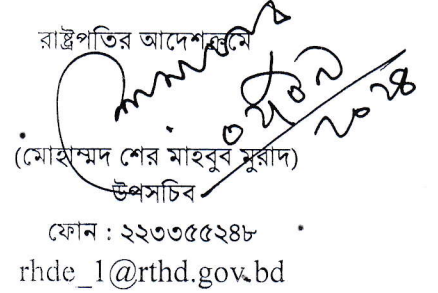 রাষ্ট্রপতির আদেশক্রমে
২০২৪
(মোহাম্মদ শের মাহবুব মুরাদ)
উপসচিব
ফোন : ২২৩৩৫৫২৪৮
rhde_1@rthd.gov.bd